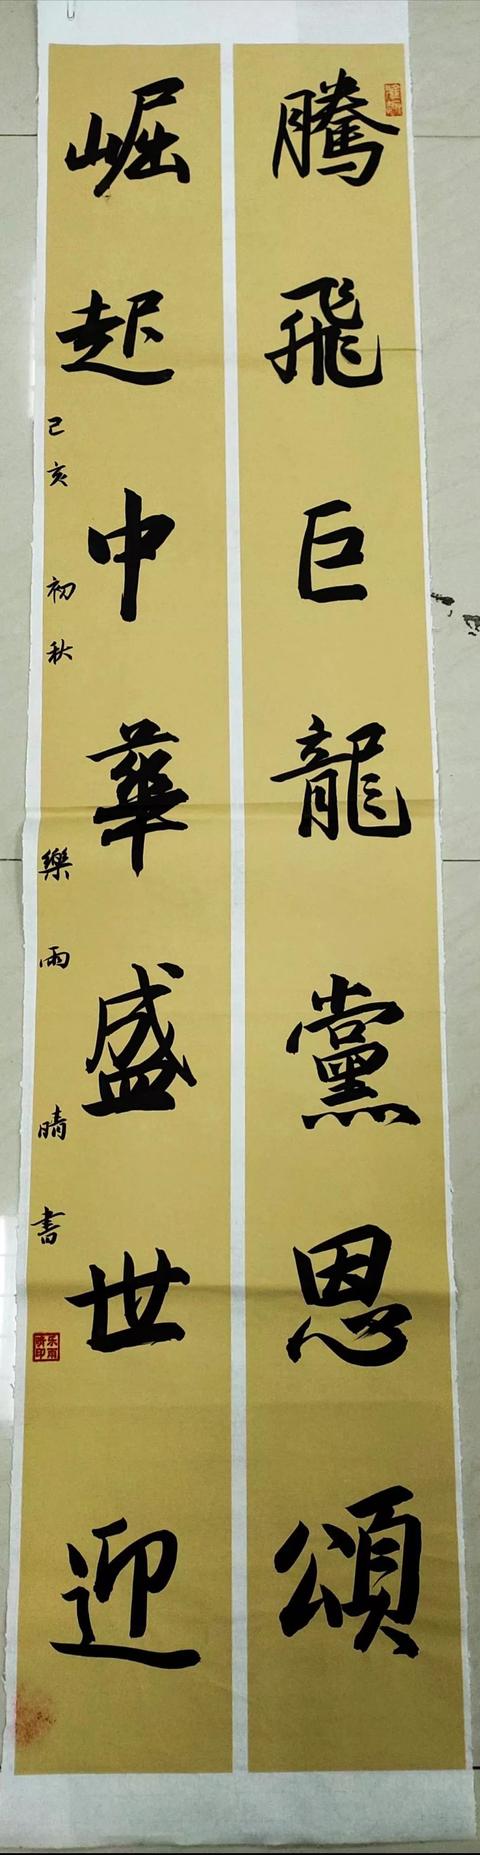 騰飛巨龍黨恩頌
崛起中華盛世迎
己亥初秋樂雨晴書
乐雨晴印